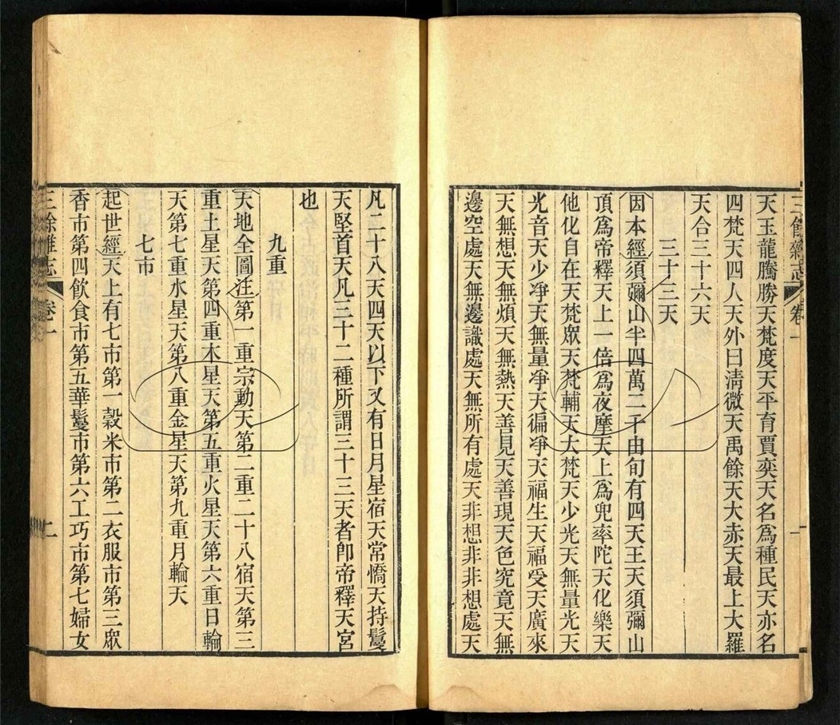 三餘雜志 卷一
天玉龍騰勝天梵度天平育賈奕天名爲種民天亦名
四梵天四人天外曰淸微天禹餘天大赤天最上大羅
天合三十六天
三十三天
因本經須彌山半四萬二千由旬有四天王天須彌山
頂爲帝釋天上一倍爲夜摩天上爲兜率陀天化樂天
他化自在天梵眾天梵輔天大梵天少光天無量光天
光音天少淨天無量淨天徧淨天福生天福受天廣來
天無想天無煩天無熱天善見天善現天色究竟天無
邊空處天無邊識處天無所有處天非想非非想處天
凡二十八天四天以下又有日月星宿天常憍天持鬘
天堅首天凡三十二種所謂三十三天者卽帝釋天宮
也
九重
天地全圖注第一重宗動天第二重二十八宿天第三
重土星天第四重木星天第五重火星天第六重日輪
天第七重水星天第八重金星天第九重月輪天
七市
起世經天上有七市第一穀米市第二衣服市第三眾
香市第四飲食市第五華鬘市第六工巧市第七婦女
三餘雜志 卷一